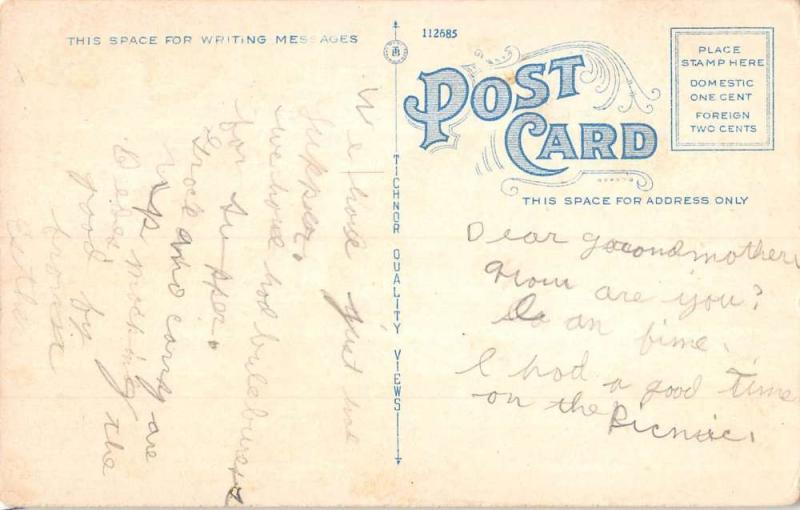 THIS SPACE FOR WRITING MESSAGES
112685
POST CARD
PLACE
STAMP HERE
DOMESTIC
ONE CENT
FOREIGN
TWO CENTS
THIS SPACE FOR ADDRESS ONLY
TICHNOR QUALITY VIEWS
Dear gocondmother
How are you?
I had a good time
on the Picnic.
We have just had
supper.
we have had
for supper.
and candy are
up
the
good by